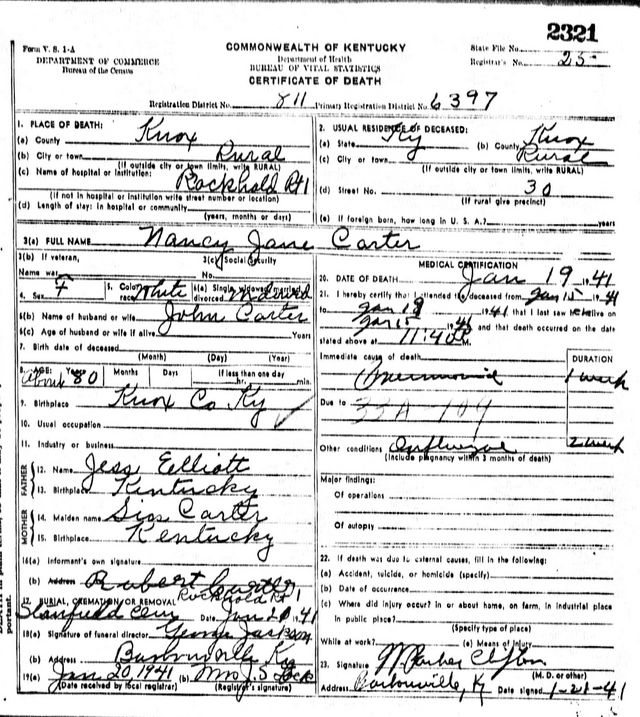 2321
Form V. S. 1-A
DEPARTMENT OF COMMERCE
Bureau of the Census
COMMONWEALTH OF KENTUCKY
Department of Health
BUREAU OF VITAL STATISTICS
CERTIFICATE OF DEATH
State File No.
Registrar's No. 25
Registration District No. 811 Primary Registration District No. 6397
1. PLACE OF DEATH:
(a) County Knox
(b) City or town Rural
(If outside city or town limits, write RURAL)
(c) Name of hospital or institution: Rockhold Rt 1
(If not in hospital or institution write street number or location)
(d) Length of stay: In hospital or community
(years, months or days)
2. USUAL RESIDENCE OF DECEASED:
(a) State Ky (b) County Knox
(c) City or town Rural
(If outside city or town limits, write RURAL)
(d) Street No. 30
(If rural give precinct)
(e) If foreign born, how long in U. S. A.? years
3(a) FULL NAME Nancy Jane Carter
3(b) If veteran,
Name war
3(c) Social Security
No.
4. Sex F 5. Color race White 6(a) Single, widowed, married, divorced Widowed
6(b) Name of husband or wife John Carter
6(c) Age of husband or wife if alive Years
7. Birth date of deceased
(Month) (Day) (Year)
8. AGE: Years Months Days If less than one day
about 80 hr. min.
9. Birthplace Knox Co Ky
10. Usual occupation
11. Industry or business
FATHER
12. Name Jess Elliott
13. Birthplace Kentucky
MOTHER
14. Maiden name Sis Carter
15. Birthplace Kentucky
16(a) Informant's own signature
(b) Address Robert
Rockhold Rt 1
17. BURIAL, CREMATION OR REMOVAL
Stanfield Cem Date Jan 20 1941
18(a) Signature of funeral director George Jackson
(b) Address Barbourville Ky
19(a) Jan 20 1941 (b) Mrs J. S.
(Date received by local registrar) (Registrar's signature)
MEDICAL CERTIFICATION
20. DATE OF DEATH Jan 19 1941
21. I hereby certify that I attended the deceased from Jan 15 1941
to Jan 18 1941 that I last saw her alive on
Jan 15 1941 and that death occurred on the date
stated above at 11:40 P.M.
Immediate cause of death DURATION
Pneumonia 1 week
Due to 33A-109
Other conditions Influenza 2 week
(Include pregnancy within 3 months of death)
Major findings:
Of operations
Of autopsy
22. If death was due to external causes, fill in the following:
(a) Accident, suicide, or homicide (specify)
(b) Date of occurrence
(c) Where did injury occur? in or about home, on farm, in industrial place
in public place?
(Specify type of place)
While at work? (e) Means of injury
23. Signature Parker
(M. D. or other)
Address Barbourville, Ky Date signed 1-21-41
portant.